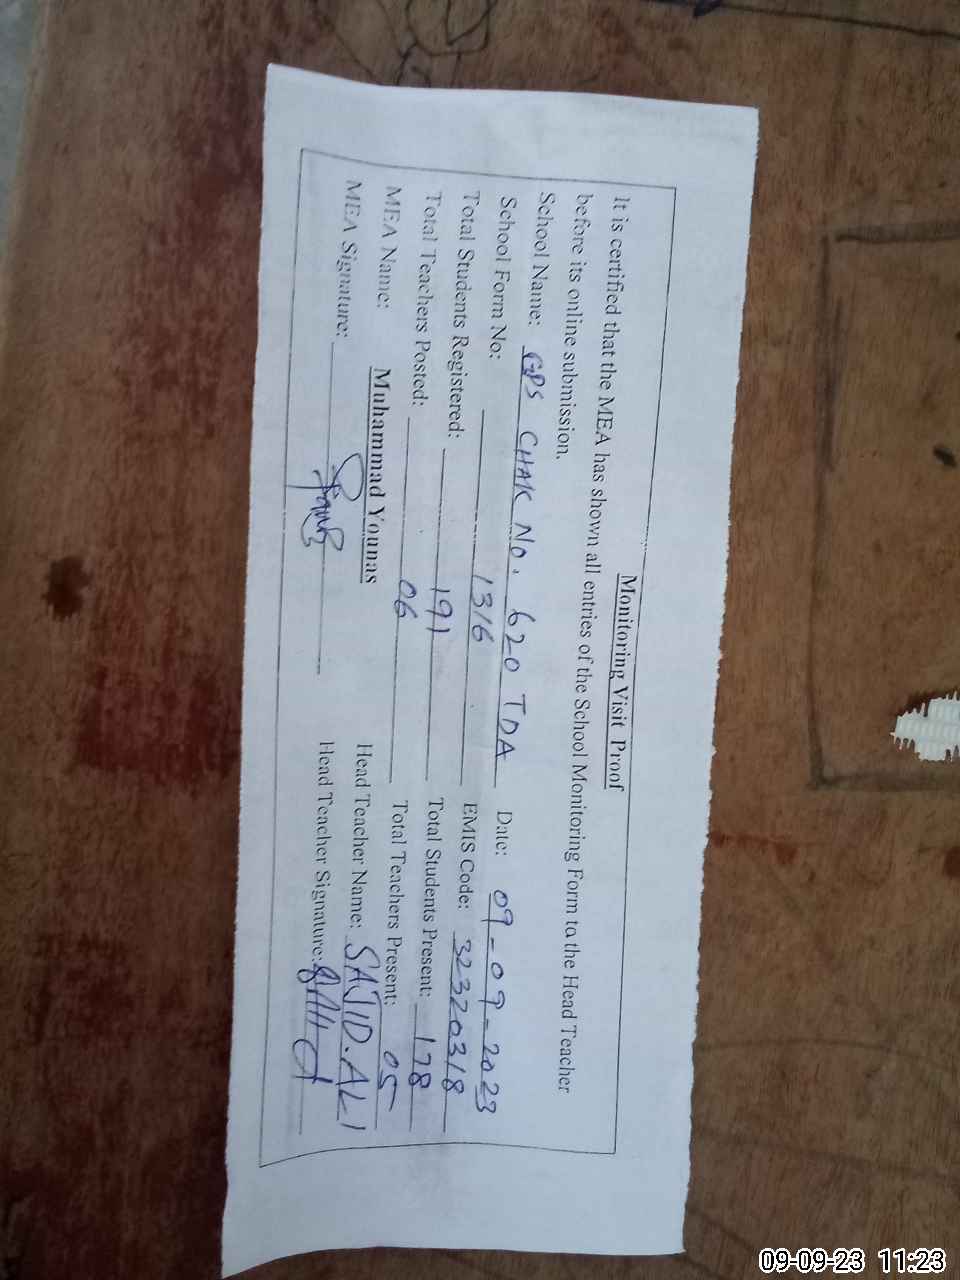 Monitoring Visit Proof
It is certified that the MEA has shown all entries of the School Monitoring Form to the Head Teacher
before its online submission.
School Name: GPS CHAK No. 620 TDA Date: 09-09-2023
School Form No: 1316 EMIS Code: 32320318
Total Students Registered: 191 Total Students Present: 178
Total Teachers Posted: 06 Total Teachers Present: 05
MEA Name: Muhammad Younas Head Teacher Name: SAJID.ALI
MEA Signature: Head Teacher Signature:
09-09-23 11:23